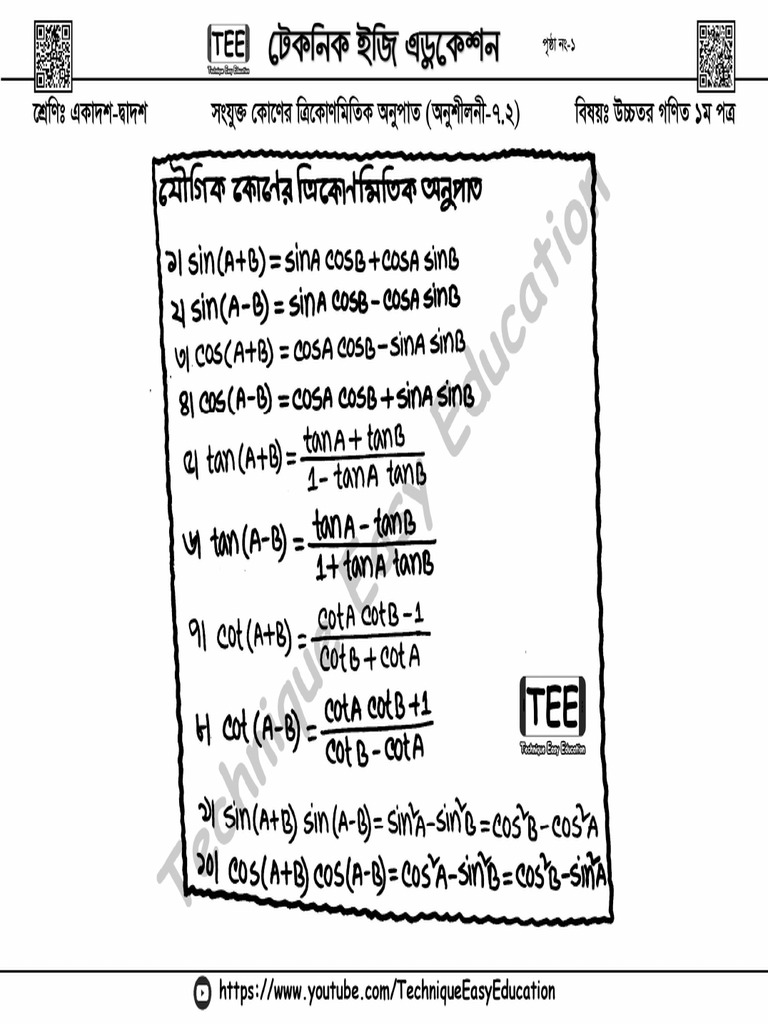 TEE
Technique Easy Education
টেকনিক ইজি এডুকেশন
পৃষ্ঠা নং-১
শ্রেণিঃ একাদশ-দ্বাদশ
সংযুক্ত কোণের ত্রিকোণমিতিক অনুপাত (অনুশীলনী-৭.২)
বিষয়ঃ উচ্চতর গণিত ১ম পত্র
যৌগিক কোণের ত্রিকোণমিতিক অনুপাত
১। sin(A+B) = sinA cosB + cosA sinB
২। sin(A-B) = sinA cosB - cosA sinB
৩। cos(A+B) = cosA cosB - sinA sinB
৪। cos(A-B) = cosA cosB + sinA sinB
৫। tan(A+B) = (tanA + tanB)/(1 - tanA tanB)
৬। tan(A-B) = (tanA - tanB)/(1 + tanA tanB)
৭। cot(A+B) = (cotA cotB - 1)/(cotB + cotA)
৮। cot(A-B) = (cotA cotB + 1)/(cotB - cotA)
TEE
Technique Easy Education
৯। sin(A+B) sin(A-B) = sin²A - sin²B = cos²B - cos²A
১০। cos(A+B) cos(A-B) = cos²A - sin²B = cos²B - sin²A
Technique Easy Education
https://www.youtube.com/TechniqueEasyEducation